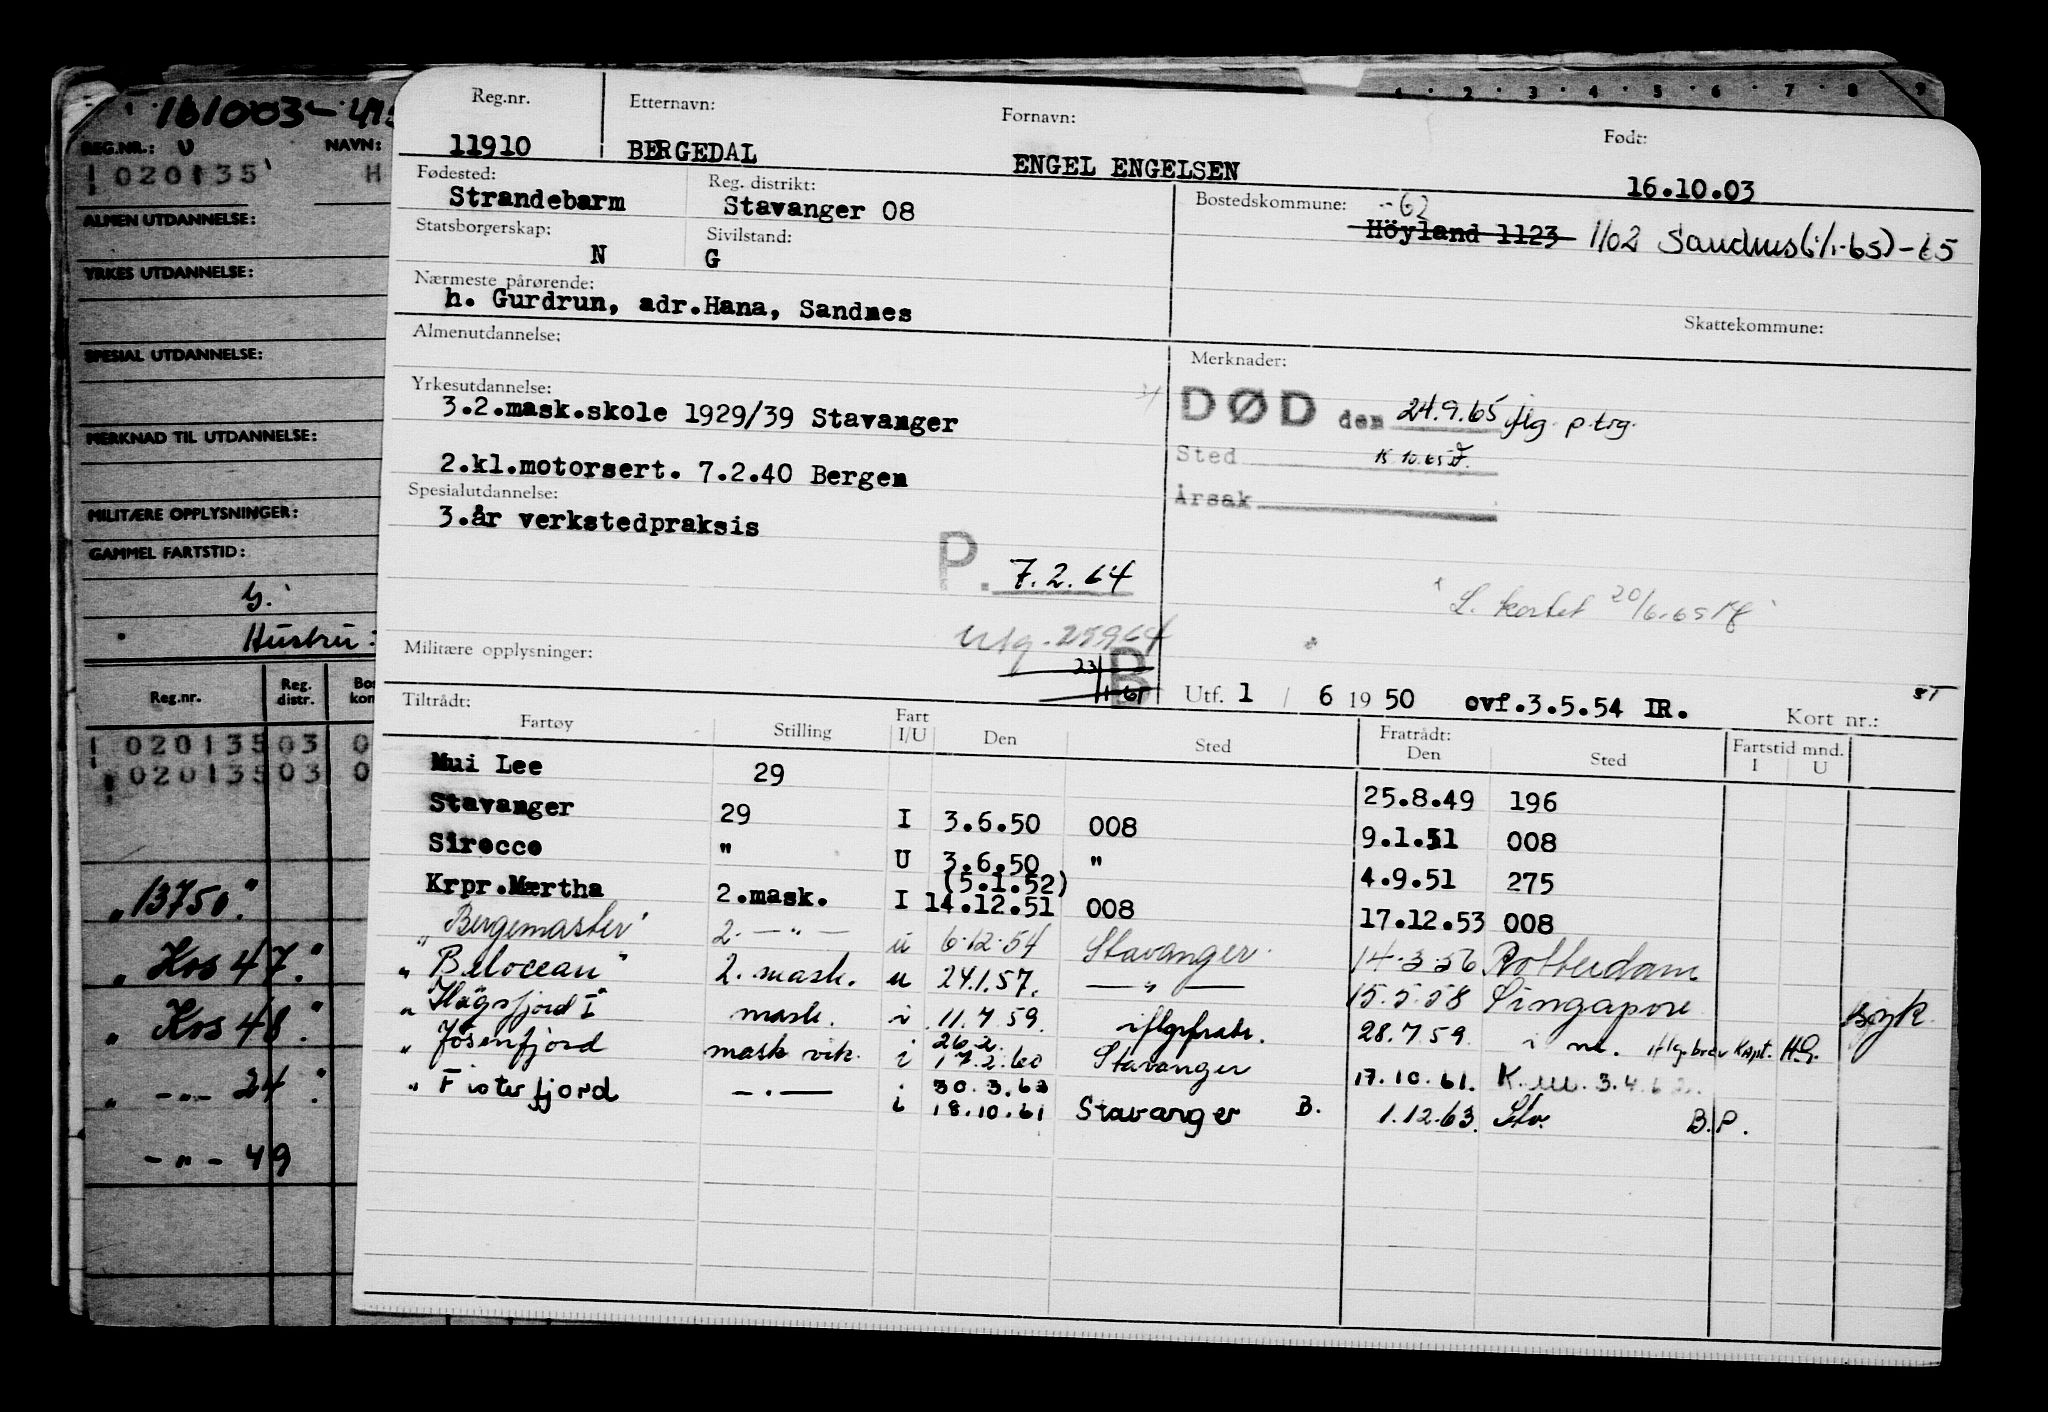 161003-
REG.NR.: NAVN:
1020135 H
ALMEN UTDANNELSE:
YRKES UTDANNELSE:
SPESIAL UTDANNELSE:
MERKNAD TIL UTDANNELSE:
MILITÆRE OPPLYSNINGER:
GAMMEL FARTSTID:
G.
Hustru:
Reg.nr. Reg. distr.
1020135 03 0
1020135 03 0
"13750."
" Kos 47."
" Kos 48."
" -"- 24 "
-"- 49
1 2 3 4 5 6 7 8 9
Reg.nr. Etternavn: Fornavn: Født:
11910 BERGEDAL ENGEL ENGELSEN 16.10.03
Fødested: Reg. distrikt: Bostedskommune: -62
Strandebarm Stavanger 08 Höyland 1123 1102 Sandnes (1/1-65) -65
Statsborgerskap: Sivilstand:
N G
Nærmeste pårørende:
h. Gurdrun, adr.Hana, Sandnes
Skattekommune:
Almenutdannelse: Merknader:
Yrkesutdannelse:
3.2.mask.skole 1929/39 Stavanger
DØD den 24.9.65 flg. p.trg.
2.kl.motorsert. 7.2.40 Bergen
Sted 15.10.65
Årsak
Spesialutdannelse:
3.år verkstedpraksis
P. 7.2.64
L. kortet 20/6-65
Utg. 25964
Militære opplysninger:
23/1-65 B
Utf. 1 / 6 19 50 ovf.3.5.54 IR. Kort nr.:
Tiltrådt: Fratrådt: Fartstid mnd.
Fartøy Stilling Fart I/U Den Sted Den Sted I U
Mui Lee 29 25.8.49 196
Stavanger 29 I 3.6.50 008 9.1.51 008
Sirocco " U 3.6.50 " 4.9.51 275
(5.1.52)
Krpr.Mærtha 2.mask. I 14.12.51 008 17.12.53 008
"Bergemaster" 2. -"- u 6.12.54 Stavanger. 14.3.56 Rotterdam
"Belocean" 2. mask. u 24.1.57. -"- 15.5.58 Singapore syk.
"Högsfjord I" mask. i 11.7.59. iflgfratr. 28.7.59. i nr. iflg.brev Kapt. H.G.
26.2.
"Jösenfjord mask vik. i 17.2.60 Stavanger 17.10.61. K. 3.4.62.
30.3.63
"Fisterfjord -"- i 18.10.61 Stavanger B. 1.12.63. Stv. B.P.